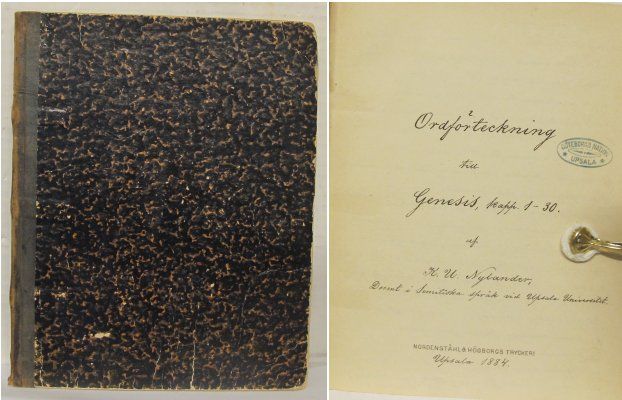 Ordförteckning
till
Genesis, kapp. 1-30.
af
K. U. Nylander,
Docent i Semitiska språk vid Upsala Universitet.
GÖTEBORGS NATION
UPSALA
NORDENSTÅHL & HÖGBORGS TRYCKERI
Upsala 1884.